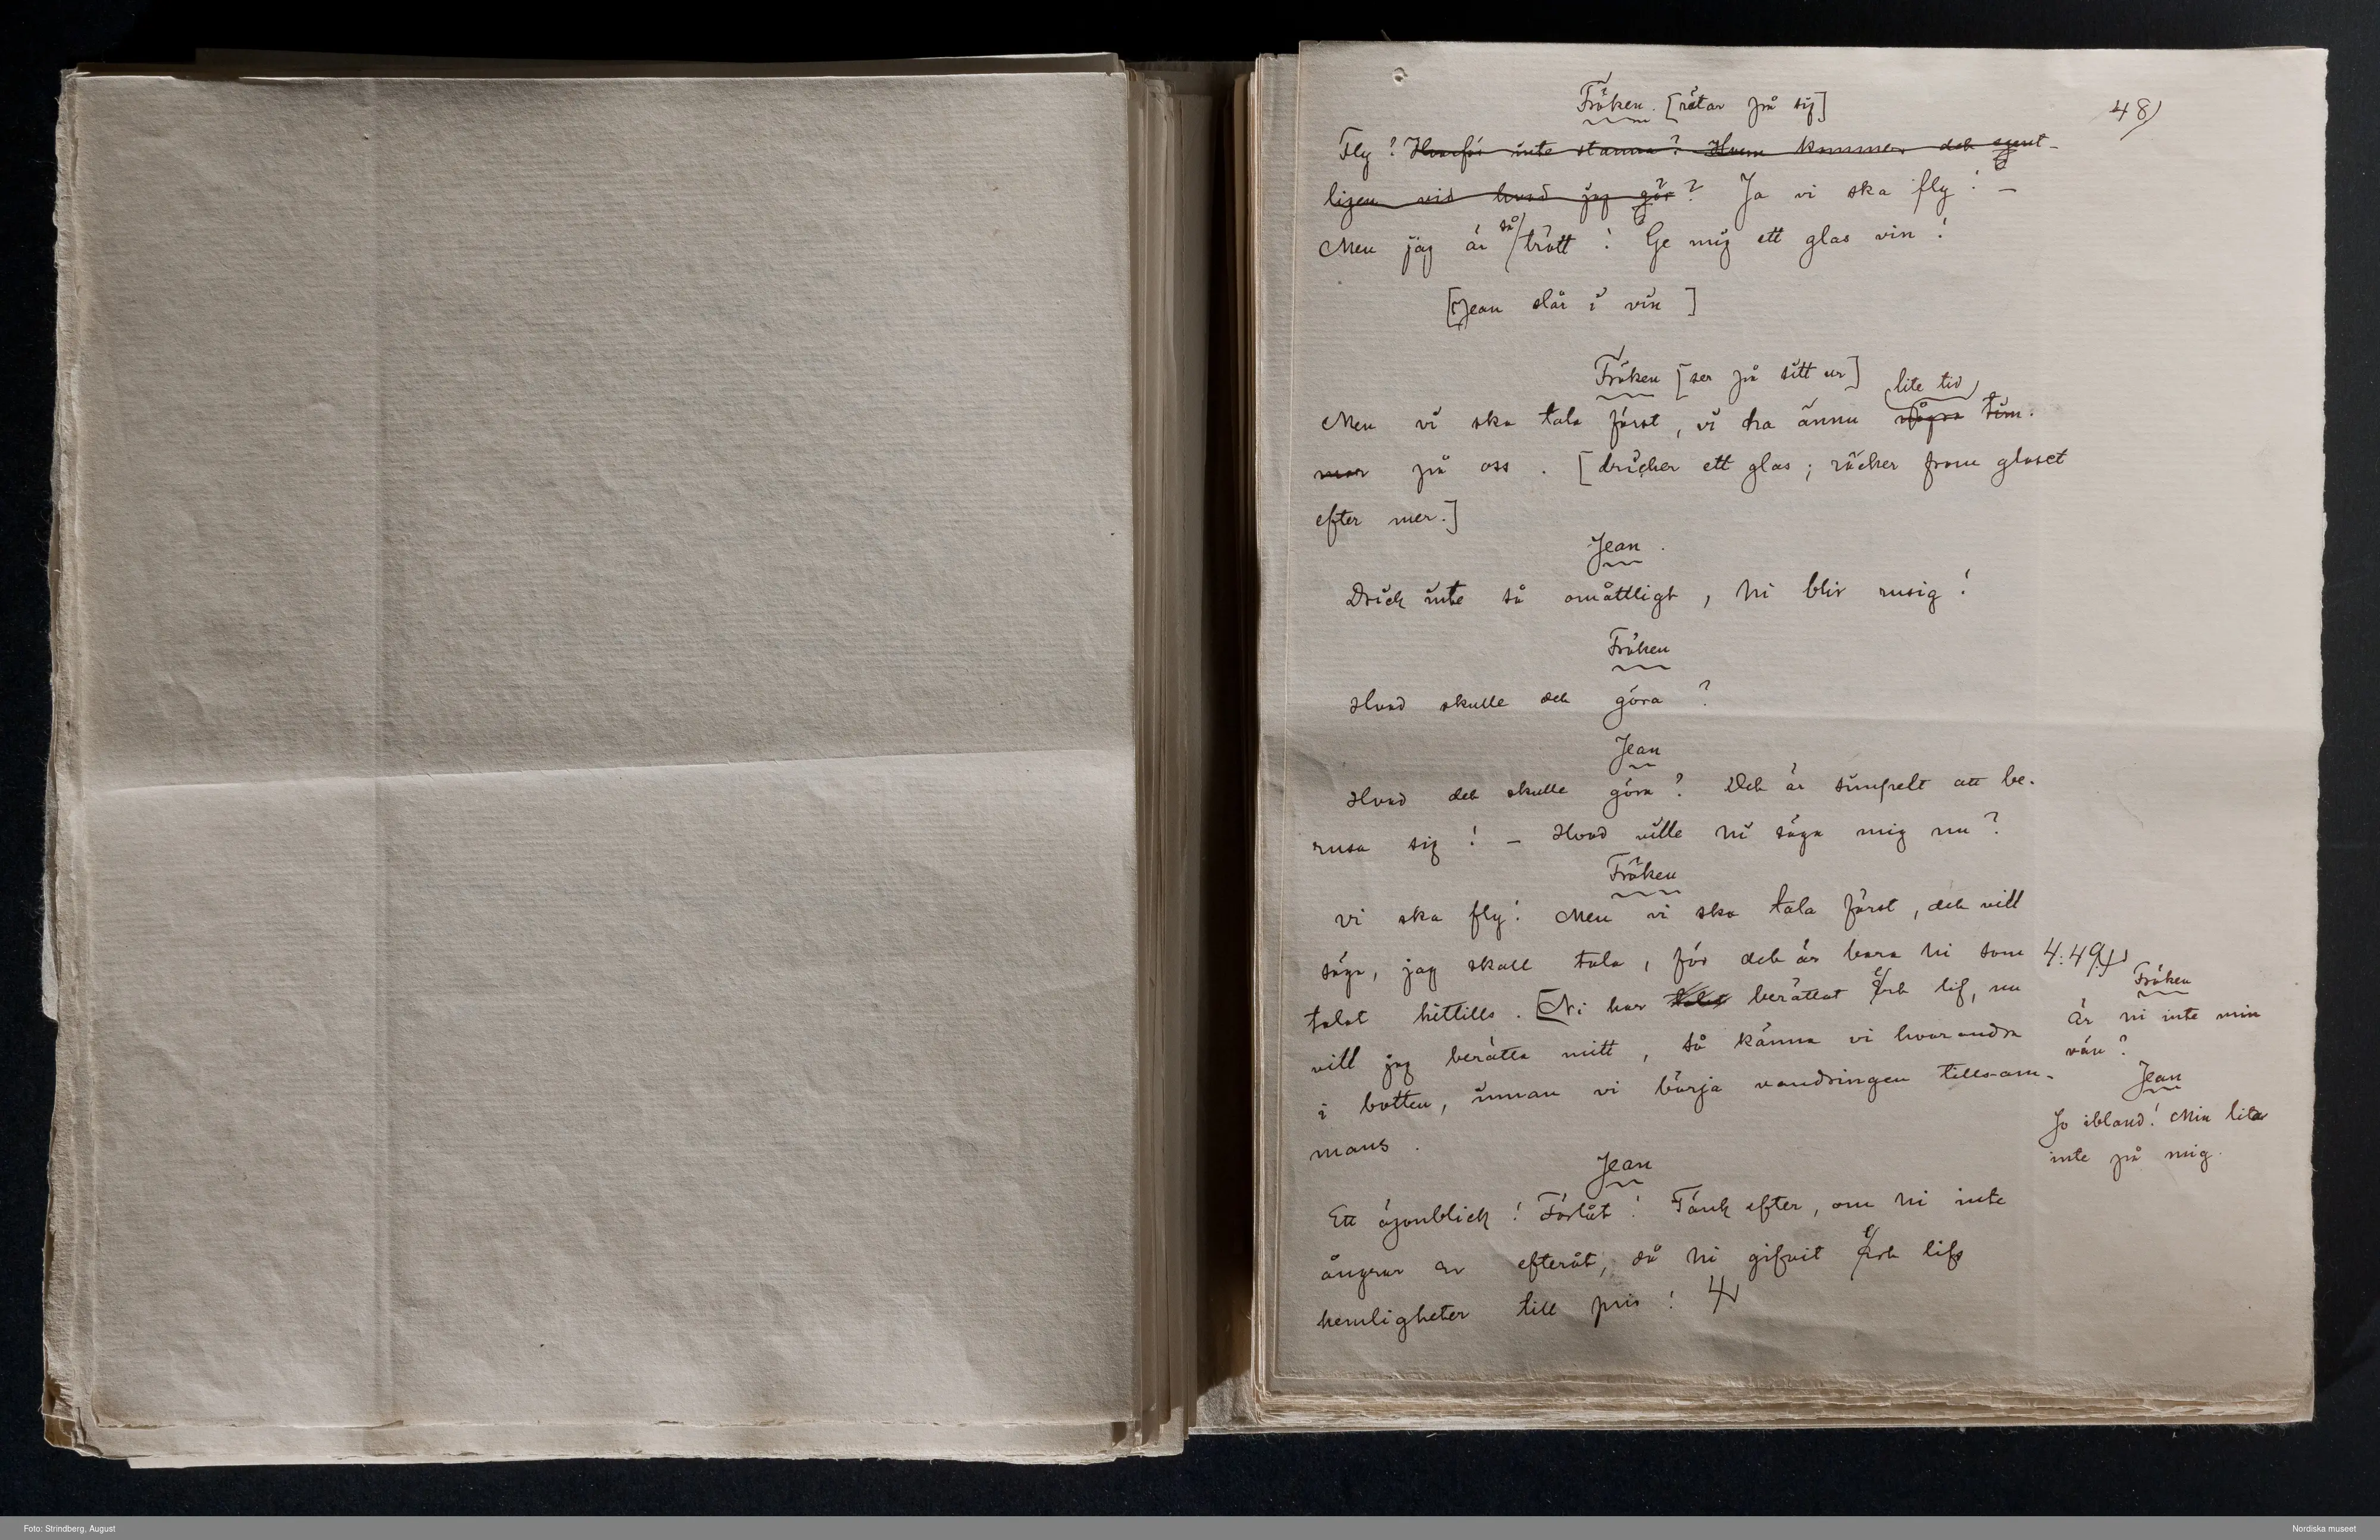 48)
Fröken. [rätar på sig]
Fly? Hvarför inte stanna? Hvem kommer det egent-
ligen vid hvad jag gör? Ja vi ska fly! –
Men jag är så trött! Ge mig ett glas vin!
[Jean slår i vin]
Fröken [ser på sitt ur]
lite tid
Men vi ska tala först, vi ha ännu några tim-
mar på oss. [dricker ett glas; räcker fram glaset
efter mer.]
Jean.
Drick inte så omåttligt, Ni blir rusig!
Fröken
Hvad skulle det göra?
Jean
Hvad det skulle göra? Det är simpelt att be-
rusa sig! – Hvad ville Ni säga mig nu?
Fröken
Vi ska fly! Men vi ska tala först, det vill
säga, jag skall tala, för det är bara Ni som
talat hittills. [Ni har talat berättat Ert lif, nu
vill jag berätta mitt, så känna vi hvarandra
i botten, innan vi börja vandringen tillsam-
mans.
Jean
Ett ögonblick! Förlåt! Tänk efter, om Ni inte
ångrar er efteråt, då Ni gifvit Ert lifs
hemligheter till pris!
4.49.
Fröken
Är ni inte min
vän?
Jean
Jo ibland! Min lita
inte på mig.
Foto: Strindberg, August
Nordiska museet